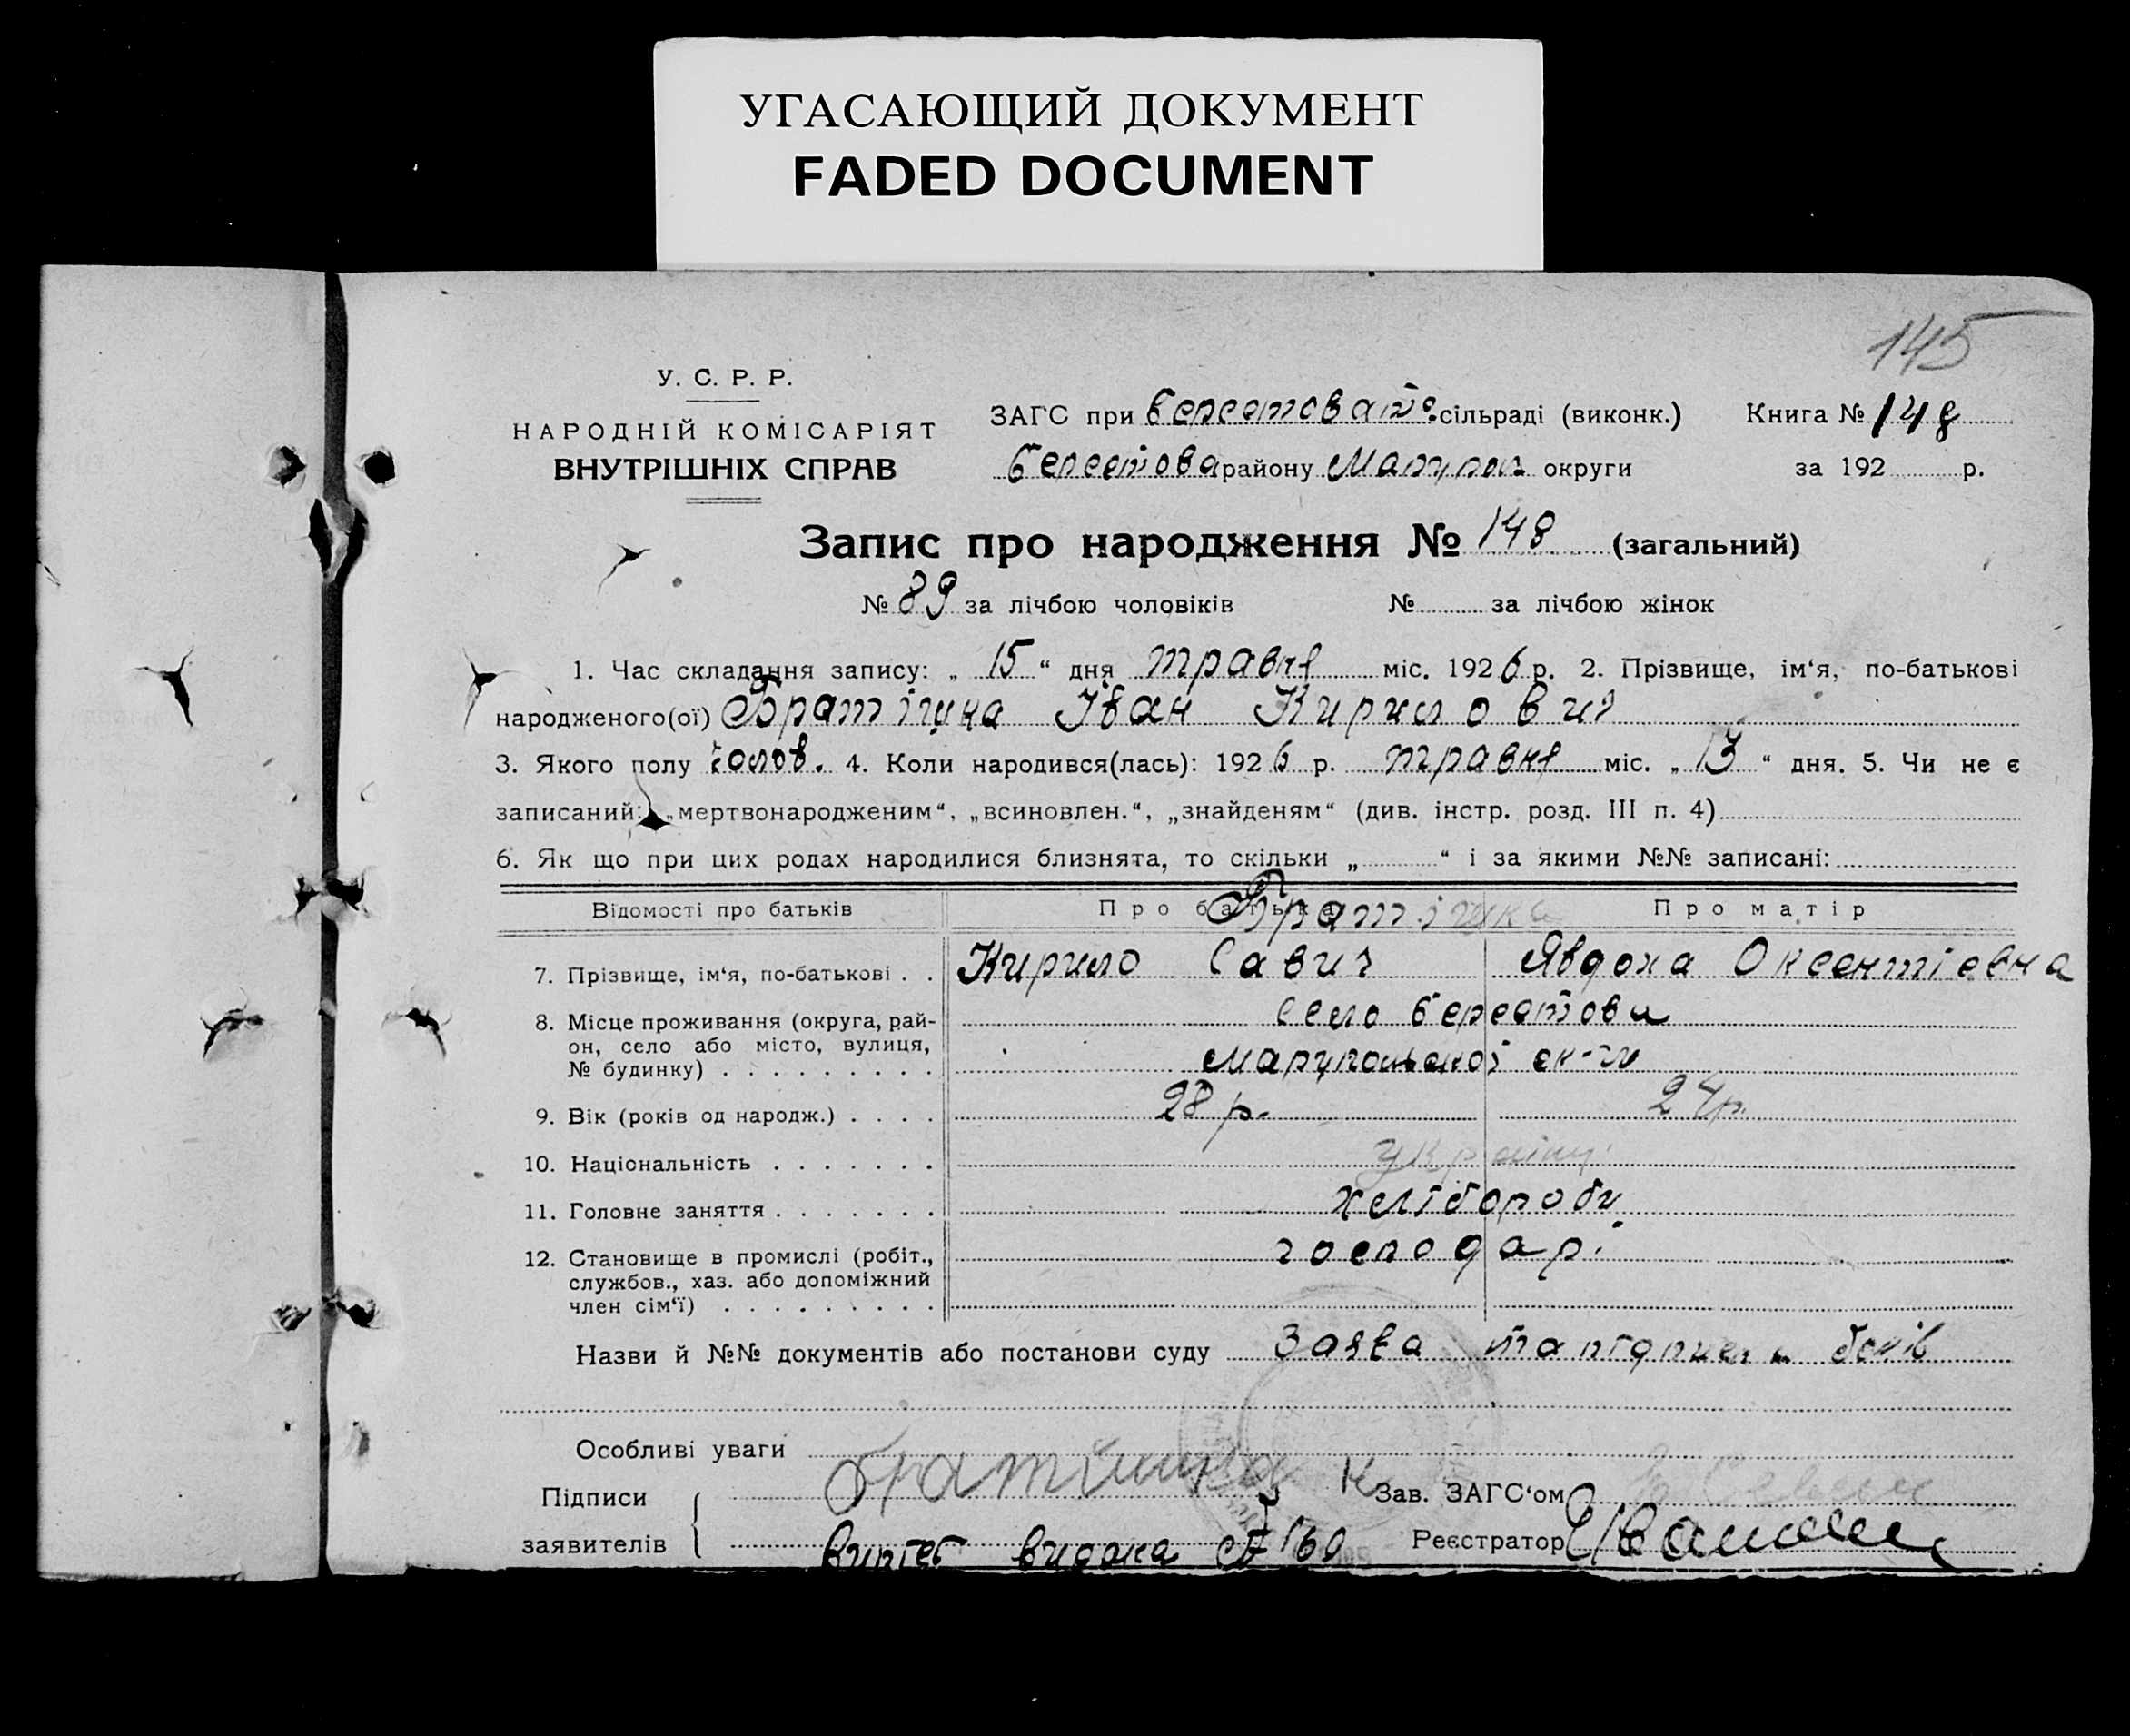 УГАСАЮЩИЙ ДОКУМЕНТ
FADED DOCUMENT
145
У. С. Р. Р.
НАРОДНІЙ КОМІСАРІЯТ
ВНУТРІШНІХ СПРАВ
ЗАГС при Берестоват. сільраді (виконк.) Книга № 148
Берестова району Маріупол округи за 192 р.
Запис про народження № 148 (загальний)
№ 89 за лічбою чоловіків № за лічбою жінок
1. Час складання запису: „ 15 “ дня травня міс. 1926 р. 2. Прізвище, ім‘я, по-батькові
народженого(ої) Братішка Іван Кирилович
3. Якого полу чолов. 4. Коли народився(лась): 1926 р. травня міс. „ 13 “ дня. 5. Чи не є
записаний: „мертвонародженим“, „всиновлен.“, „знайденям“ (див. інстр. розд. III п. 4)
6. Як що при цих родах народилися близнята, то скільки „ “ і за якими №№ записані:
Відомості про батьків Про батька Про матір
Братішка
7. Прізвище, ім‘я, по-батькові . . Кирило Савич Явдоха Оксентіевна
8. Місце проживання (округа, рай-
он, село або місто, вулиця,
№ будинку) . . . . . . . . .
село Берестова
Маріупольської ок-ги
9. Вік (років од народж.) . . . . 28 р. 24 р.
10. Національність . . . . . . . україн.
11. Головне заняття . . . . . . . хлібороби
12. Становище в промислі (робіт.,
службов., хаз. або допоміжний
член сім‘ї) . . . . . . . . .
господарі
Назви й №№ документів або постанови суду Заява та підписи
Особливі уваги
Підписи
заявителів
Братішка К
Зав. ЗАГС‘ом
Витяг видана 160
Реєстратор